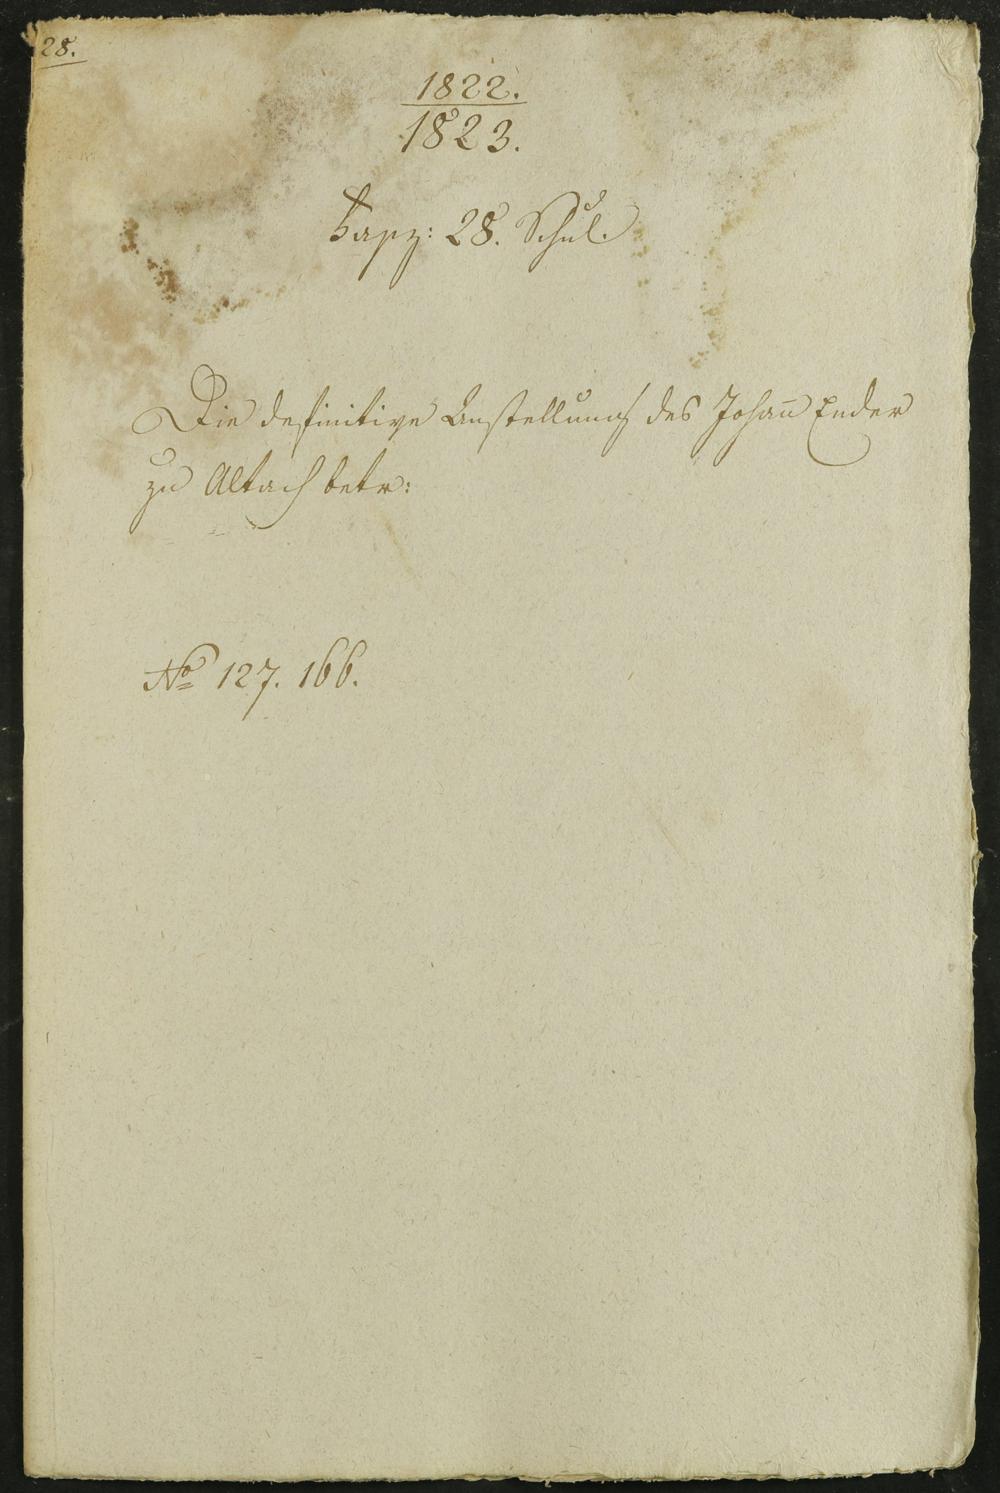 28.
1822.
1823.
Fasz: 28. Schul.
Die definitive Anstellung des Johañ Ender
zu Altach betr:
No 127. 166.